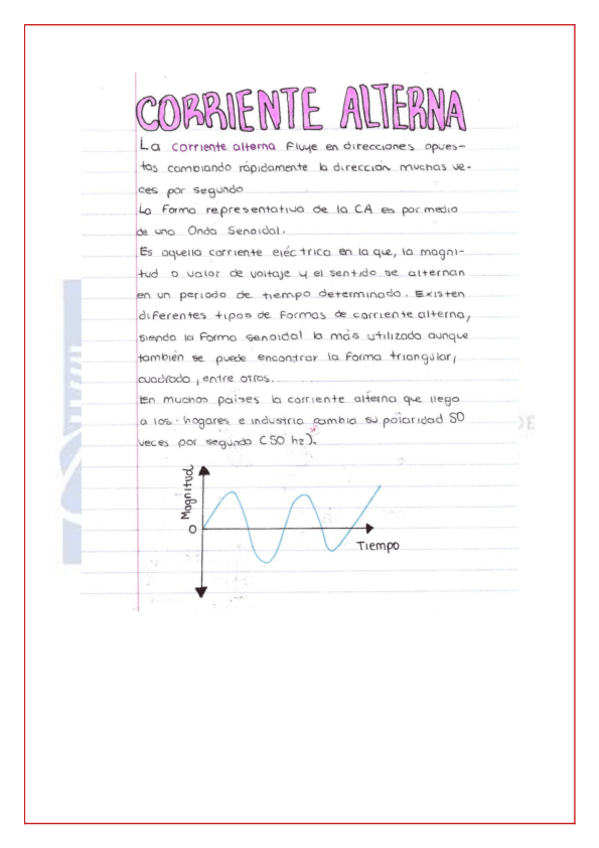 CORRIENTE ALTERNA
La corriente alterna fluye en direcciones opues-
tas cambiando rápidamente la dirección muchas ve-
ces por segundo
La forma representativa de la CA es por medio
de una Onda Senoidal.
Es aquella corriente eléctrica en la que, la magni-
tud o valor de voltaje y el sentido se alternan
en un periodo de tiempo determinado. Existen
diferentes tipos de formas de corriente alterna,
siendo la forma senoidal la más utilizada aunque
también se puede encontrar la forma triangular,
cuadrada, entre otros.
En muchos países la corriente alterna que llega
a los hogares e industria cambia su polaridad 50
veces por segundo (50 hz).
Magnitud
0
Tiempo
DE